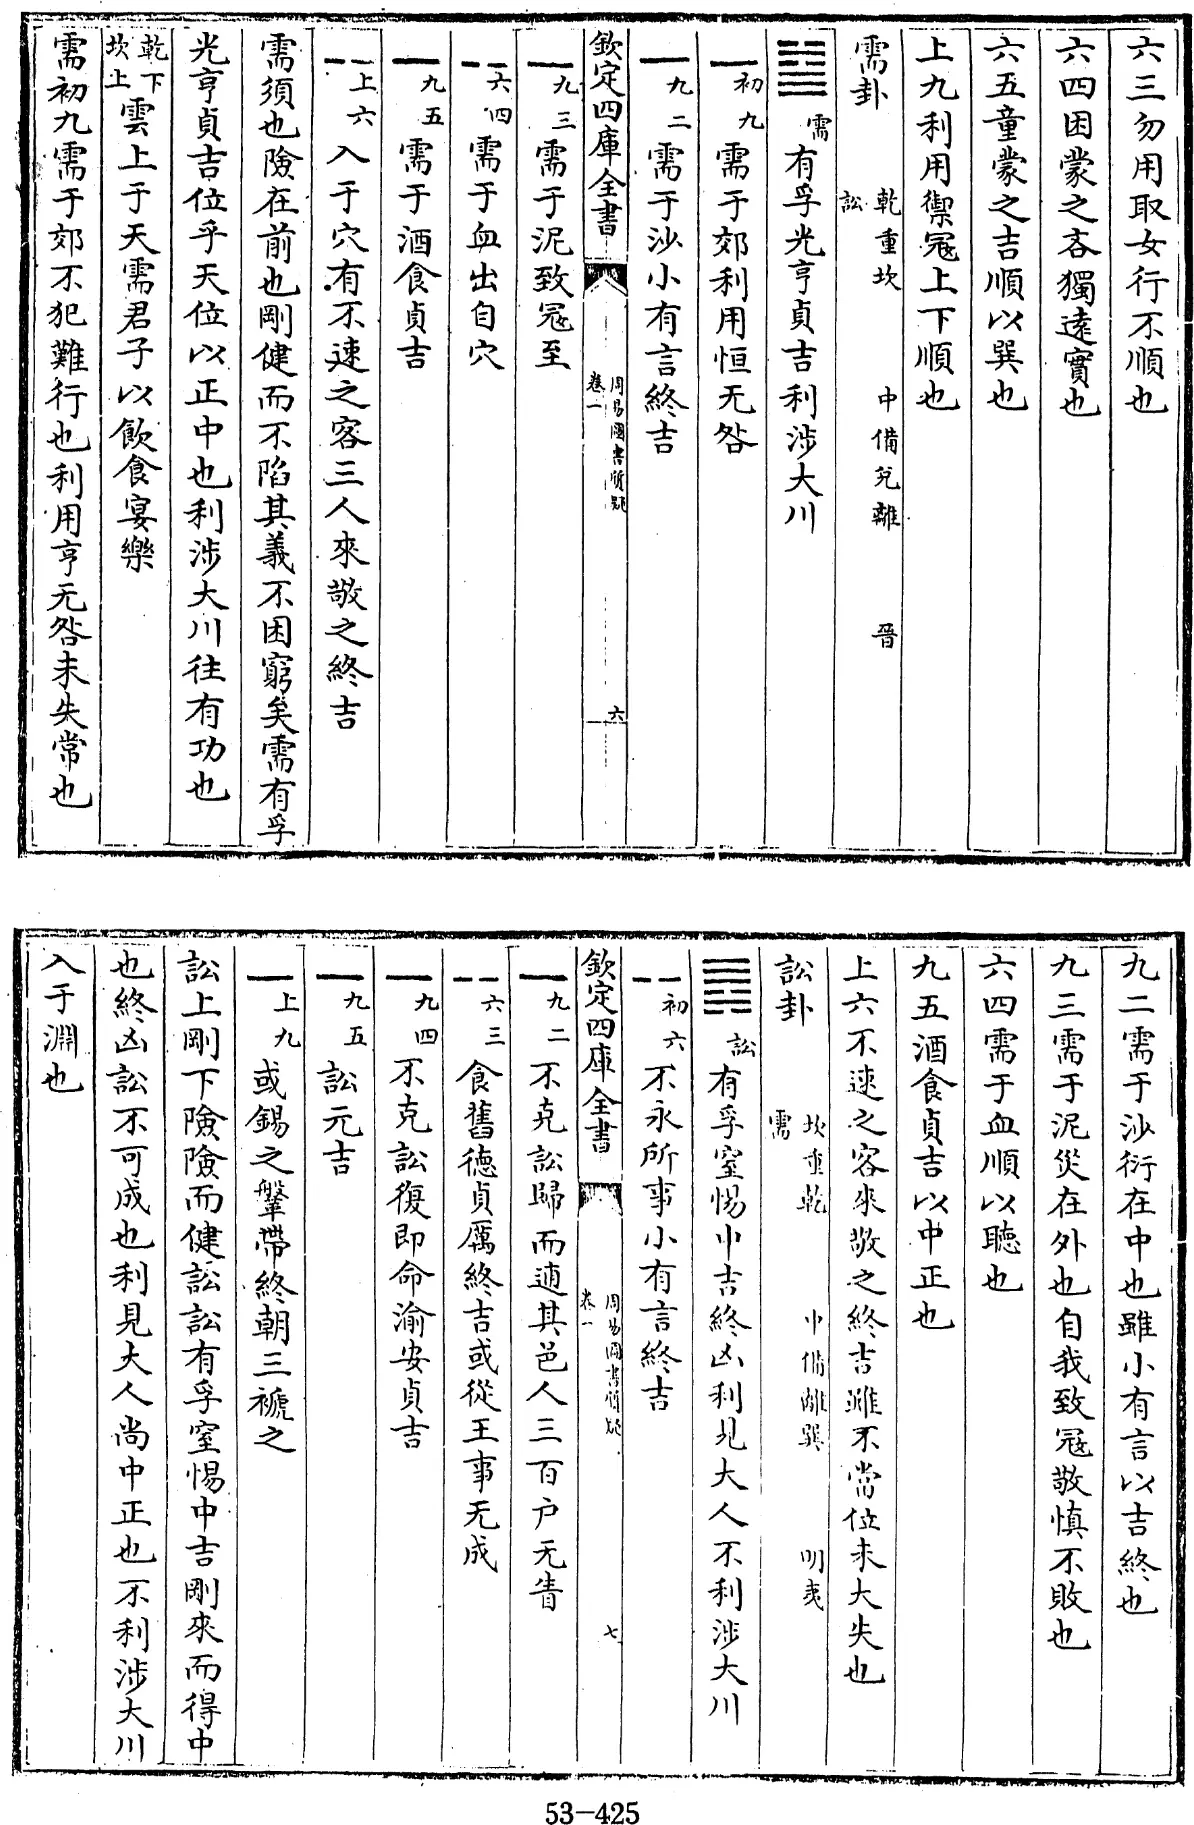 六三勿用取女行不順也
六四困蒙之吝獨遠實也
六五童蒙之吉順以巽也
上九利用禦寇上下順也
需卦 乾重坎 中備兌離 晉
訟
需 有孚光亨貞吉利涉大川
初九 需于郊利用恒无咎
九二 需于沙小有言終吉
欽定四庫全書 周易圖書質疑 卷一 六
九三 需于泥致寇至
六四 需于血出自穴
九五 需于酒食貞吉
上六 入于穴有不速之客三人來敬之終吉
需須也險在前也剛健而不陷其義不困窮矣需有孚
光亨貞吉位乎天位以正中也利涉大川往有功也
乾下坎上 雲上于天需君子以飲食宴樂
需初九需于郊不犯難行也利用亨无咎未失常也
九二需于沙衍在中也雖小有言以吉終也
九三需于泥災在外也自我致寇敬慎不敗也
六四需于血順以聽也
九五酒食貞吉以中正也
上六不速之客來敬之終吉雖不當位未大失也
訟卦 坎重乾 中備離巽 明夷
需
訟 有孚窒惕中吉終凶利見大人不利涉大川
初六 不永所事小有言終吉
欽定四庫全書 周易圖書質疑 卷一 七
九二 不克訟歸而逋其邑人三百户无眚
六三 食舊德貞厲終吉或從王事无成
九四 不克訟復即命渝安貞吉
九五 訟元吉
上九 或錫之鞶帶終朝三褫之
訟上剛下險險而健訟訟有孚窒惕中吉剛來而得中
也終凶訟不可成也利見大人尚中正也不利涉大川
入于淵也
53-425